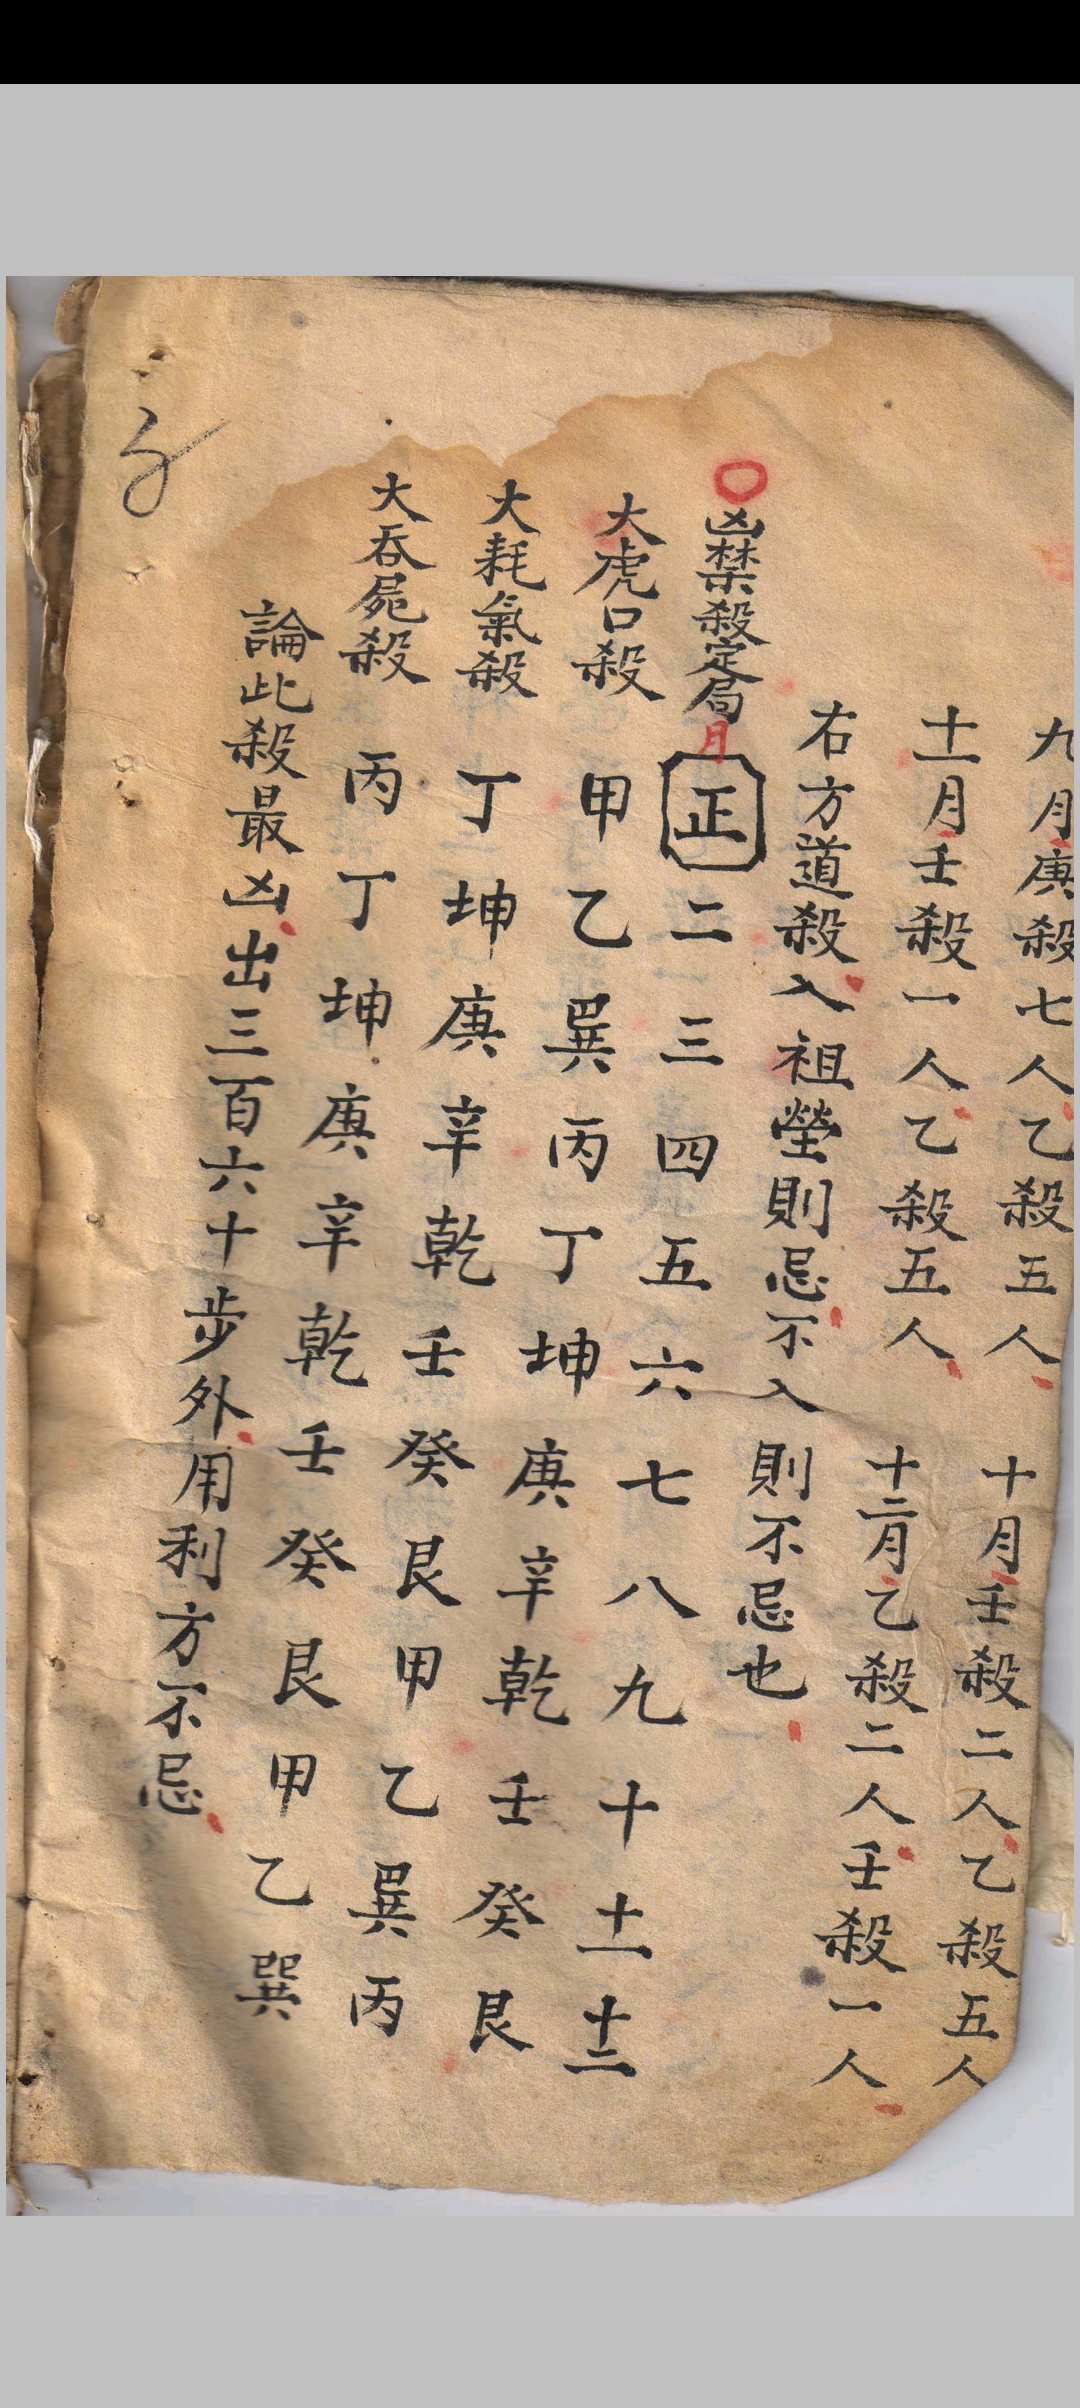 九月庚殺七人乙殺五人　十月壬殺二人乙殺五人
十一月壬殺一人乙殺五人　十二月乙殺二人壬殺一人
右方道殺入祖塋則忌不入則不忌也
○凶禁殺定局月　正二三四五六七八九十十一十二
大虎口殺　甲乙巽丙丁坤庚辛乾壬癸艮
大耗氣殺　丁坤庚辛乾壬癸艮甲乙巽丙
大吞屍殺　丙丁坤庚辛乾壬癸艮甲乙巽
論此殺最凶出三百六十步外用利方不忌